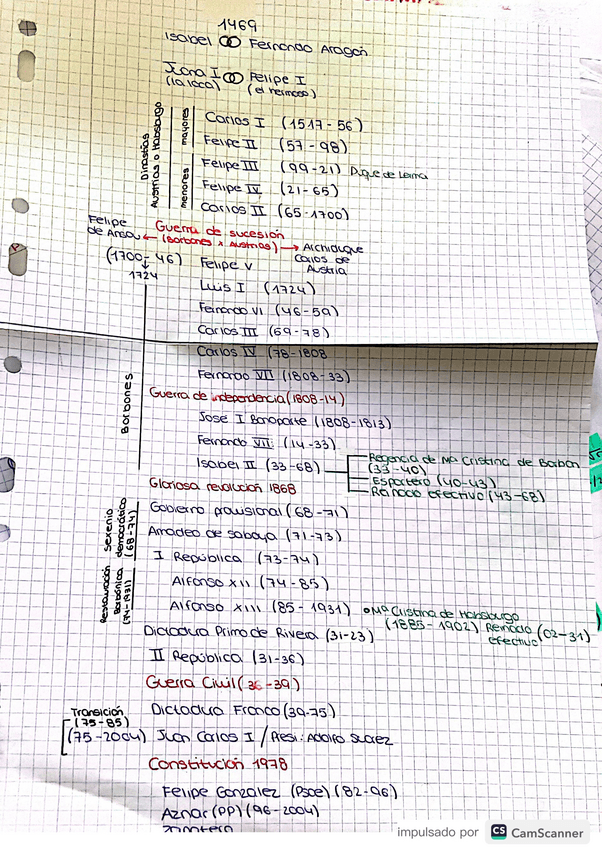 1469
Isabel Fernando Aragón
Juana I Felipe I
(la loca) (el hermoso)
Dinastías
Austrias o Habsburgo
mayores
Carlos I (1517-56)
Felipe II (57-98)
menores
Felipe III (99-21) Duque de Lerma
Felipe IV (21-65)
Carlos II (65-1700)
Guerra de sucesión
Felipe de Anjou ← (Borbones x Austrias) → Archiduque Carlos de Austria
(1700-46) Felipe V
1724
Luis I (1724)
Fernando VI (46-59)
Carlos III (69-78)
Carlos IV (78-1808
Borbones
Fernando VII (1808-33)
Guerra de independencia (1808-14)
José I Bonaparte (1808-1813)
Fernando VII: (14-33)
Isabel II (33-68)
Regencia de Mª Cristina de Borbón
(33-40)
Espartero (40-43)
Reinado efectivo (43-68)
Gloriosa revolución 1868
Sexenio democrático (68-74)
Gobierno provisional (68-71)
Amadeo de saboya (71-73)
I República (73-74)
Restauración Borbónica (74-1931)
Alfonso XII (74-85)
Alfonso XIII (85-1931) Mª Cristina de Habsburgo
(1885-1902) Reinado efectivo (02-31)
Dictadura Primo de Rivera (31-23)
II República (31-36)
Guerra Civil (36-39)
Dictadura Franco (39-75)
Transición
(75-85)
(75-2004) Juan Carlos I / Presi: Adolfo Suarez
Constitución 1978
Felipe Gonzalez (Psoe) (82-96)
Aznar (PP) (96-2004)
Zapatero
impulsado por CS CamScanner